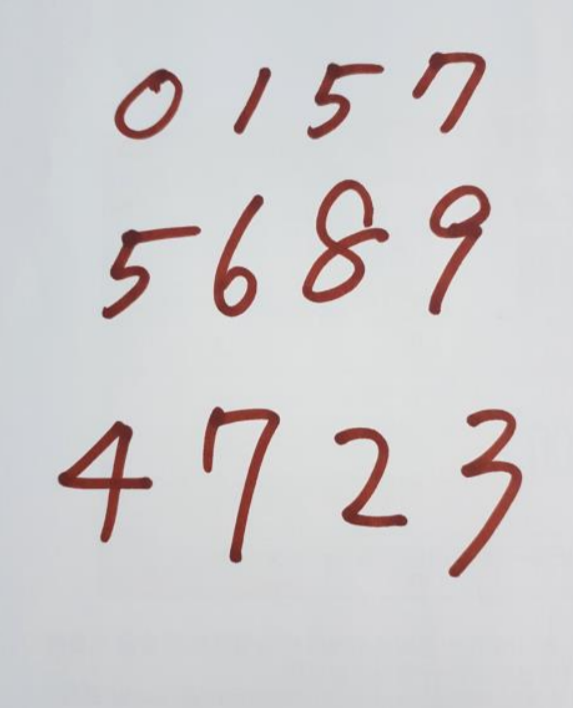 0 1 5 7
5 6 8 9
4 7 2 3